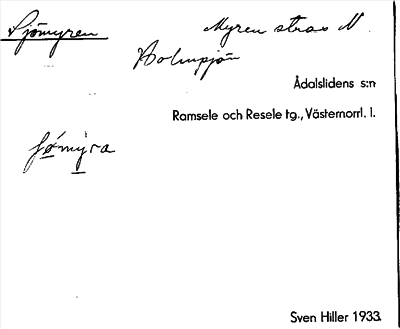 Sjömyren
Myren strax N.
Holmsjön
Ådalslidens s:n
Ramsele och Resele tg., Västernorrl. l.
Sven Hiller 1933.